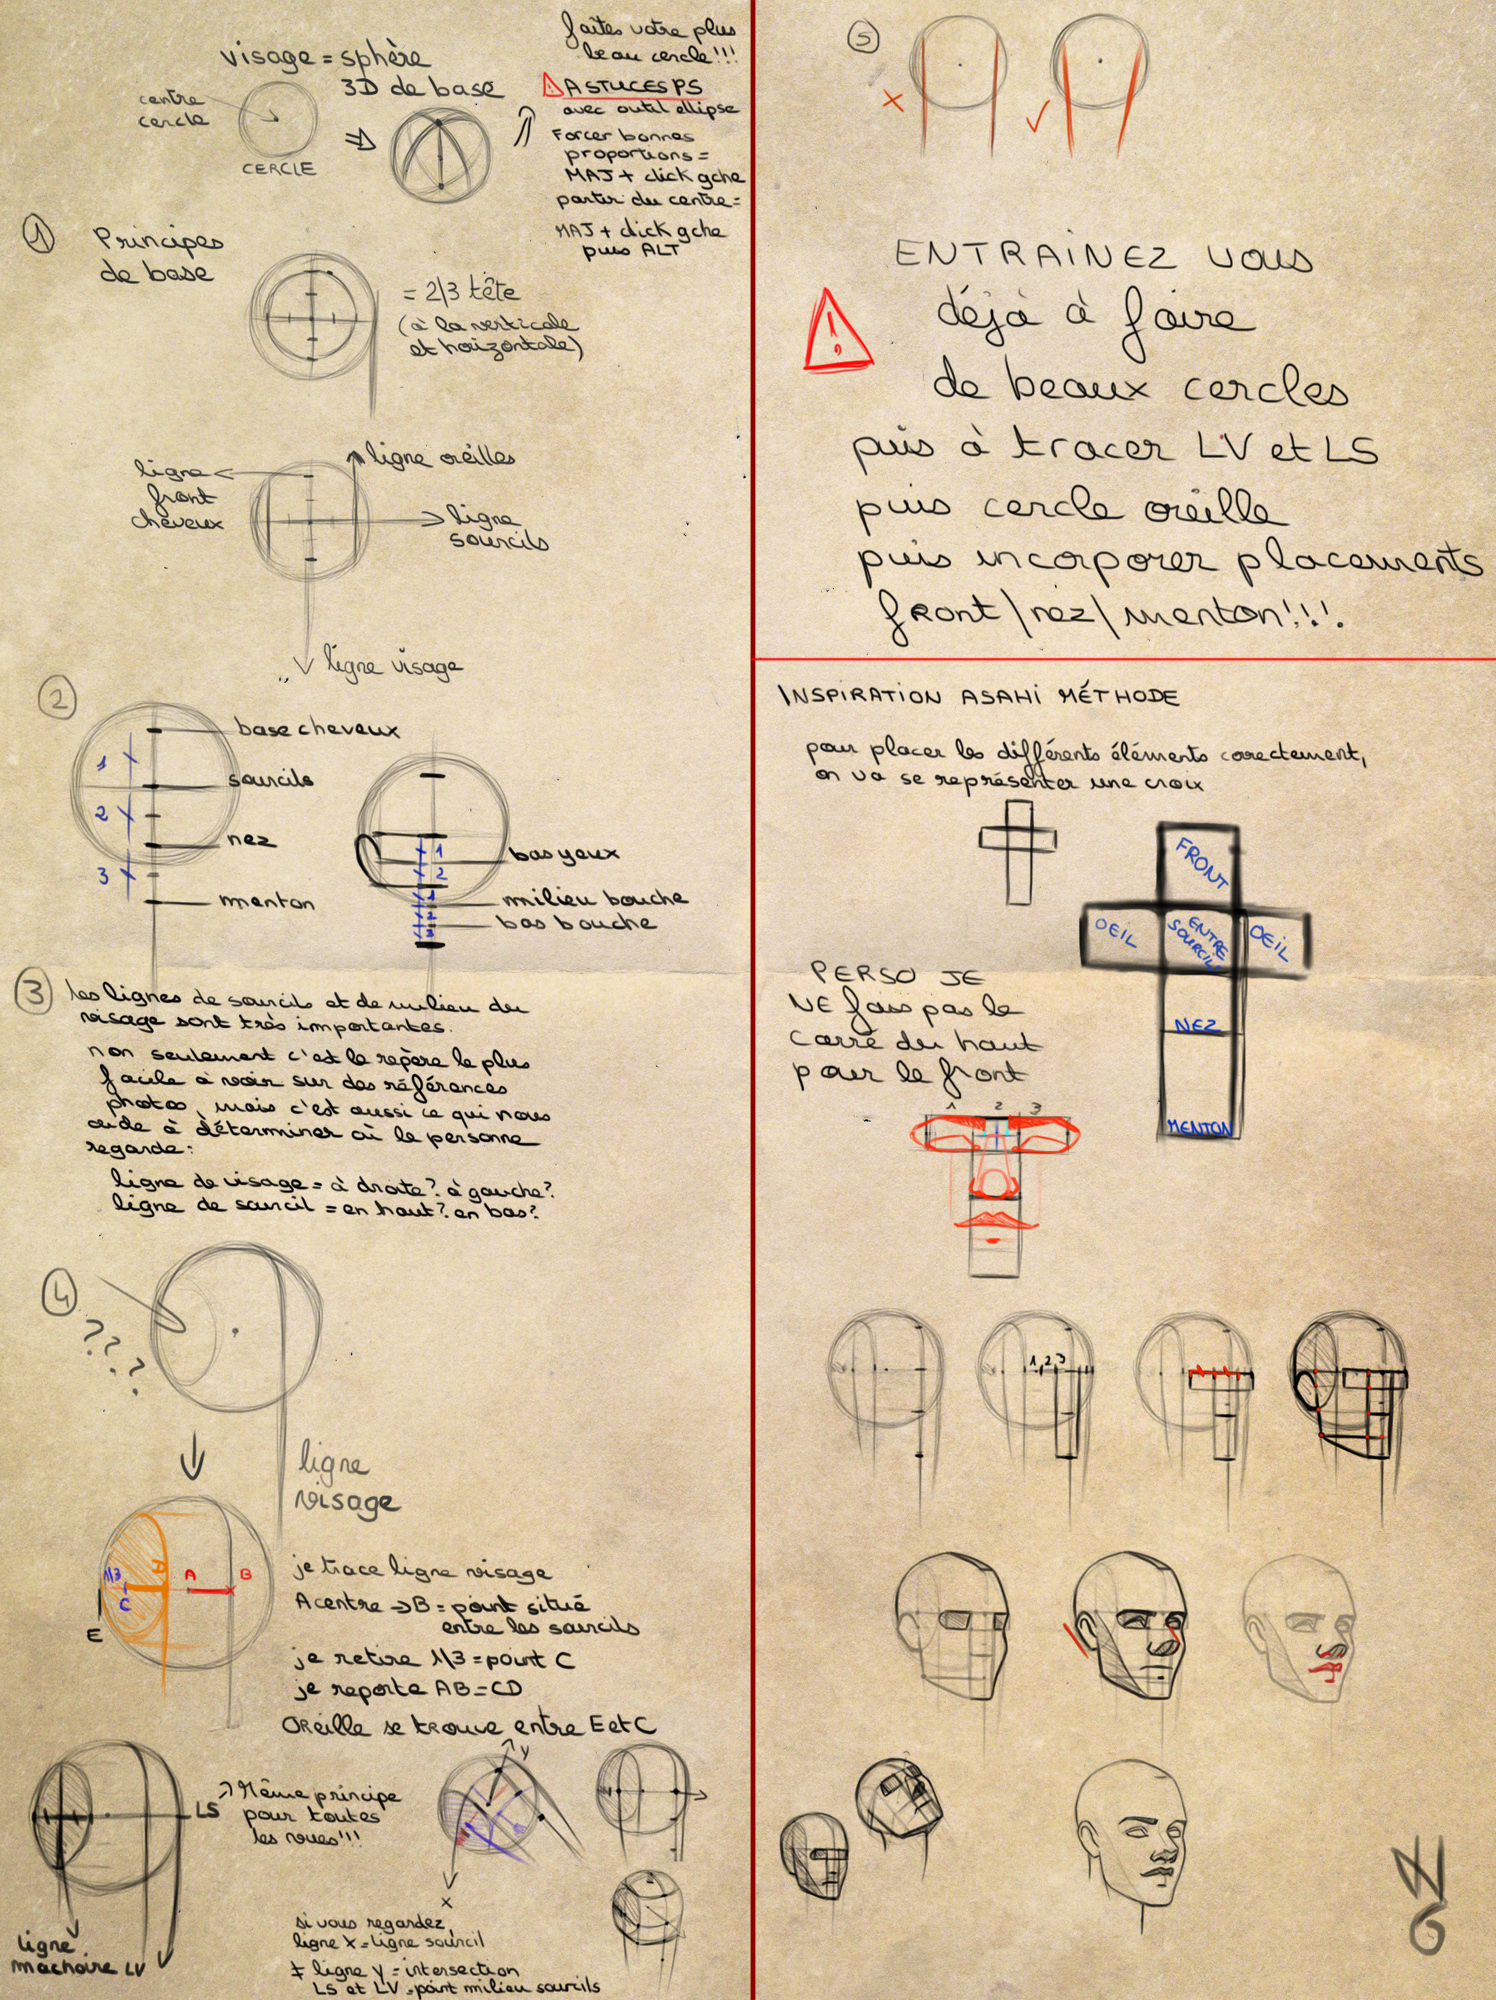 visage = sphère
3D de base
centre
cercle
CERCLE
faites votre plus
beau cercle!!!
ASTUCES PS
avec outil ellipse
Forcer bonnes
proportions =
MAJ + click gche
partir du centre =
MAJ + click gche
puis ALT
1
Principes
de base
= 2/3 tête
(à la verticale
et horizontale)
ligne
front
cheveux
ligne oreilles
ligne
sourcils
ligne visage
2
base cheveux
sourcils
nez
menton
1
2
3
bas yeux
milieu bouche
bas bouche
1
2
1
2
3
3
les lignes de sourcils et de milieu du
visage sont très importantes.
non seulement c'est le repère le plus
facile à voir sur des références
photos, mais c'est aussi ce qui nous
aide à déterminer où la personne
regarde:
ligne de visage = à droite? à gauche?
ligne de sourcil = en haut? en bas?
4
???
ligne
visage
1/3
C
E
A
B
je trace ligne visage
A centre -> B = point situé
entre les sourcils
je retire 1/3 = point C
je reporte AB = CD
Oreille se trouve entre E et C
LS
Même principe
pour toutes
les vues!!!
ligne
machoire LV
y
x
si vous regardez,
ligne X = ligne sourcil
≠ ligne y = intersection
LS et LV = point milieu sourcils
5
ENTRAINEZ vous
déjà à faire
de beaux cercles
puis à tracer LV et LS
puis cercle oreille
puis incorporer placements
front/nez/menton!!!
INSPIRATION ASAHI MÉTHODE
pour placer les différents éléments correctement,
on va se représenter une croix
FRONT
OEIL
ENTRE
SOURCILS
OEIL
NEZ
MENTON
PERSO JE
NE fais pas le
carré du haut
pour le front
1 2 3
1 2 3